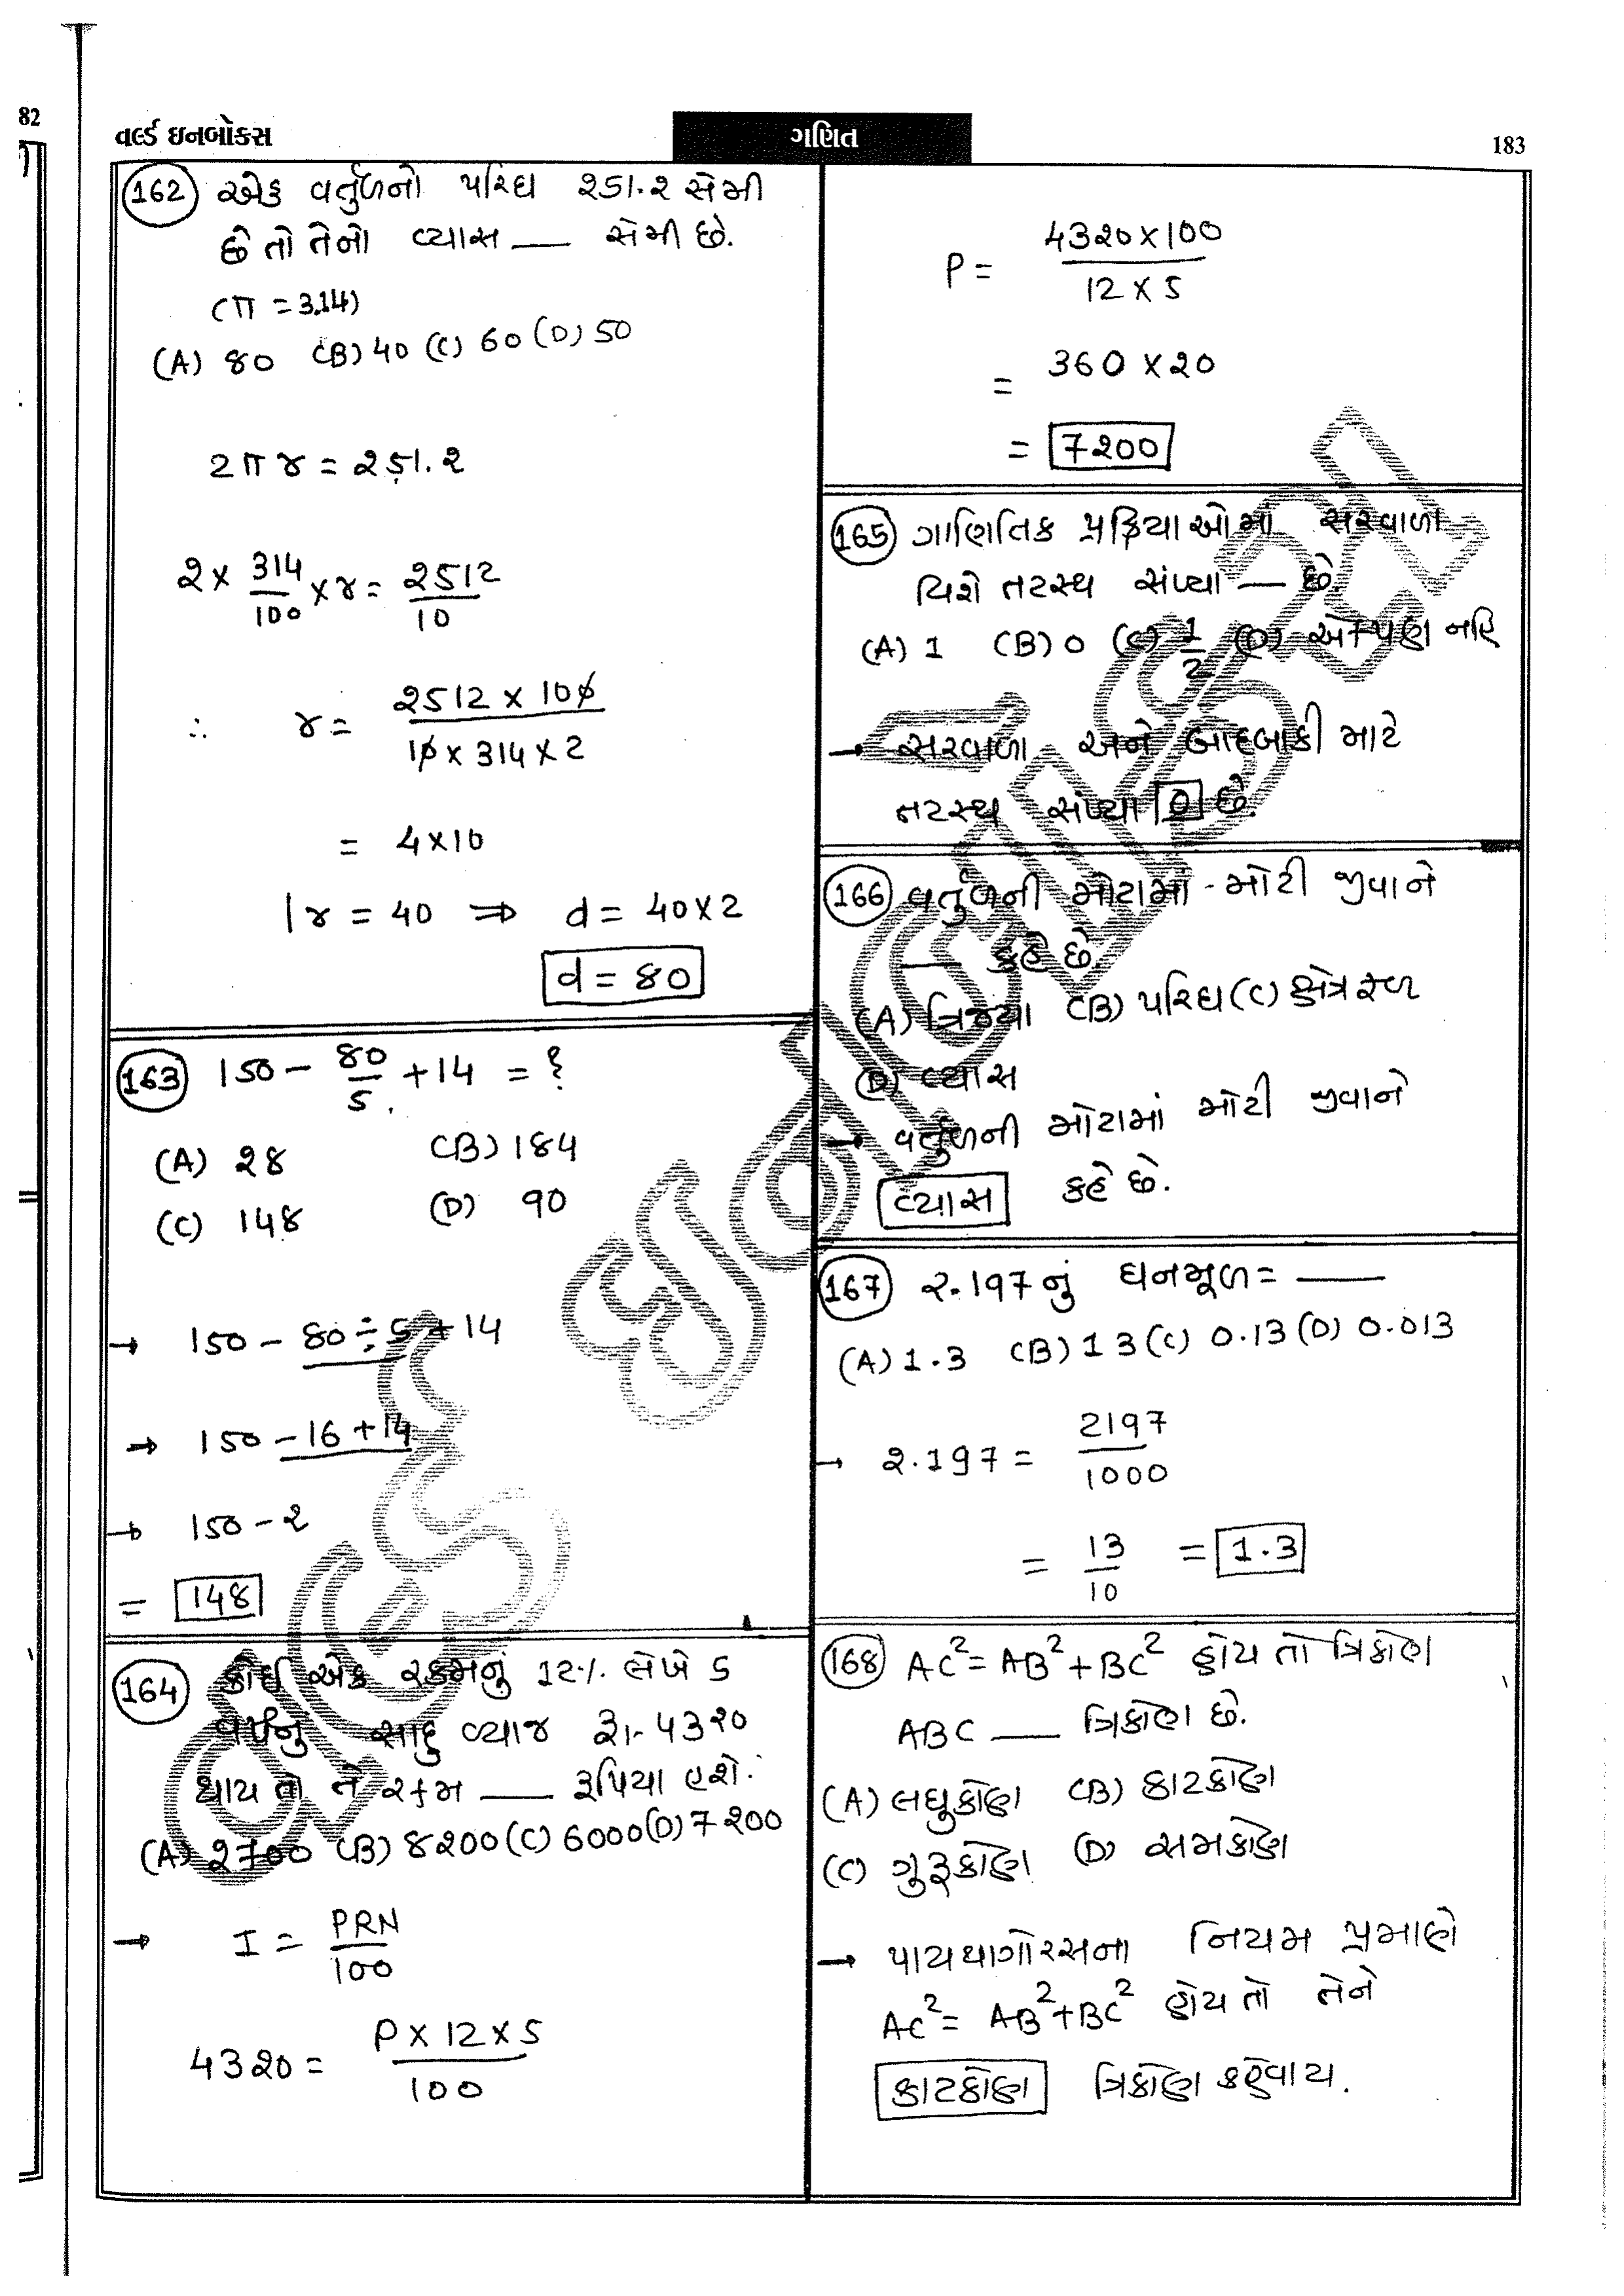 82
વર્લ્ડ ઇનબોક્સ
ગણિત
183
162 એક વર્તુળનો પરિઘ 251.2 સેમી
છે તો તેનો વ્યાસ ___ સેમી છે.
(π = 3.14)
(A) 80 (B) 40 (C) 60 (D) 50
2πr = 251.2
2 × 314/100 × r = 2512/10
∴ r = 2512 × 100 / 10 × 314 × 2
= 4×10
r = 40 ⇒ d = 40×2
d = 80
163 150 − 80/5 + 14 = ?
(A) 28 (B) 184
(C) 148 (D) 90
→ 150 − 80 ÷ 5 + 14
→ 150 − 16 + 14
→ 150 − 2
= 148
164 કોઈ એક રકમનું 12% લેખે 5
વર્ષનું સાદુ વ્યાજ રૂા. 4320
થાય તો તે રકમ ___ રૂપિયા હશે.
(A) 2700 (B) 8200 (C) 6000 (D) 7200
→ I = PRN/100
4320 = P × 12 × 5 / 100
P = 4320×100 / 12 × 5
= 360 × 20
= 7200
165 ગાણિતિક પ્રક્રિયાઓમાં સરવાળા
વિશે તટસ્થ સંખ્યા ___ છે.
(A) 1 (B) 0 (C) 1/2 (D) એકપણ નહિ
→ સરવાળા અને બાદબાકી માટે
તટસ્થ સંખ્યા 0 છે.
166 વર્તુળની મોટામાં - મોટી જીવાને
___ કહે છે.
(A) ત્રિજ્યા (B) પરિઘ (C) ક્ષેત્રફળ
(D) વ્યાસ
→ વર્તુળની મોટામાં મોટી જીવાને
વ્યાસ કહે છે.
167 2.197 નું ઘનમૂળ = ___
(A) 1.3 (B) 13 (C) 0.13 (D) 0.013
→ 2.197 = 2197/1000
= 13/10 = 1.3
168 AC² = AB² + BC² હોય તો ત્રિકોણ
ABC ___ ત્રિકોણ છે.
(A) લઘુકોણ (B) કાટકોણ
(C) ગુરૂકોણ (D) સમકોણ
→ પાયથાગોરસના નિયમ પ્રમાણે
AC² = AB² + BC² હોય તો તેને
કાટકોણ ત્રિકોણ કહેવાય.